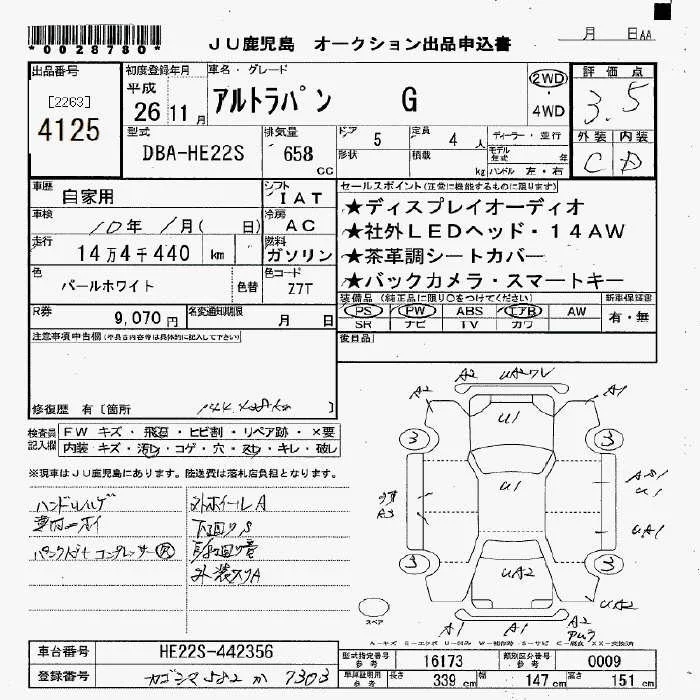 *0028780*
JU鹿児島 オークション出品申込書
月 日AA
出品番号
[2263]
4125
初度登録年月
平成
26 11月
車名・グレード
アルトラパン G
2WD
・
4WD
評価点
3.5
外装 内装
C D
型式
DBA-HE22S
排気量
658
CC
ドア 5
定員 4人
形状
積載 kg
ディーラー・並行
モデル年式 年
ハンドル 左・右
車歴
自家用
シフト
IAT
車検
10年 1月( 日)
冷房
AC
走行
14万4千440 km
燃料
ガソリン
色
パールホワイト
色替
色コード
Z7T
セールスポイント(正常に機能するものに限ります)
★ディスプレイオーディオ
★社外LEDヘッド・14AW
★茶革調シートカバー
★バックカメラ・スマートキー
装備品(純正品に限り○をつけてください)
PS PW ABS エアB AW
SR ナビ TV カワ
新車保証書
有・無
R券
9,070円
名変通知期限
月 日
後日品
注意事項申告欄
修復歴 有〔箇所 〕
検査員記入欄
FW キズ・飛石・ヒビ割・リペア跡・×要
内装 キズ・汚れ・コゲ・穴・スレ・キレ・破レ
※現車はJU鹿児島にあります。陸送費は落札店負担となります。
ハンドル
コンプレッサー
ホイールA
下回りS
A2
A1
U1
U1
UA2
3
3
3
3
A3
U1
UA1
UA2
A1
A1
A2
スペア
車台番号
HE22S-442356
登録番号
カゴシマ 582 か 7303
型式指定番号
参考
16173
類別区分番号
参考
0009
長さ 339 cm
幅 147 cm
高さ 151 cm